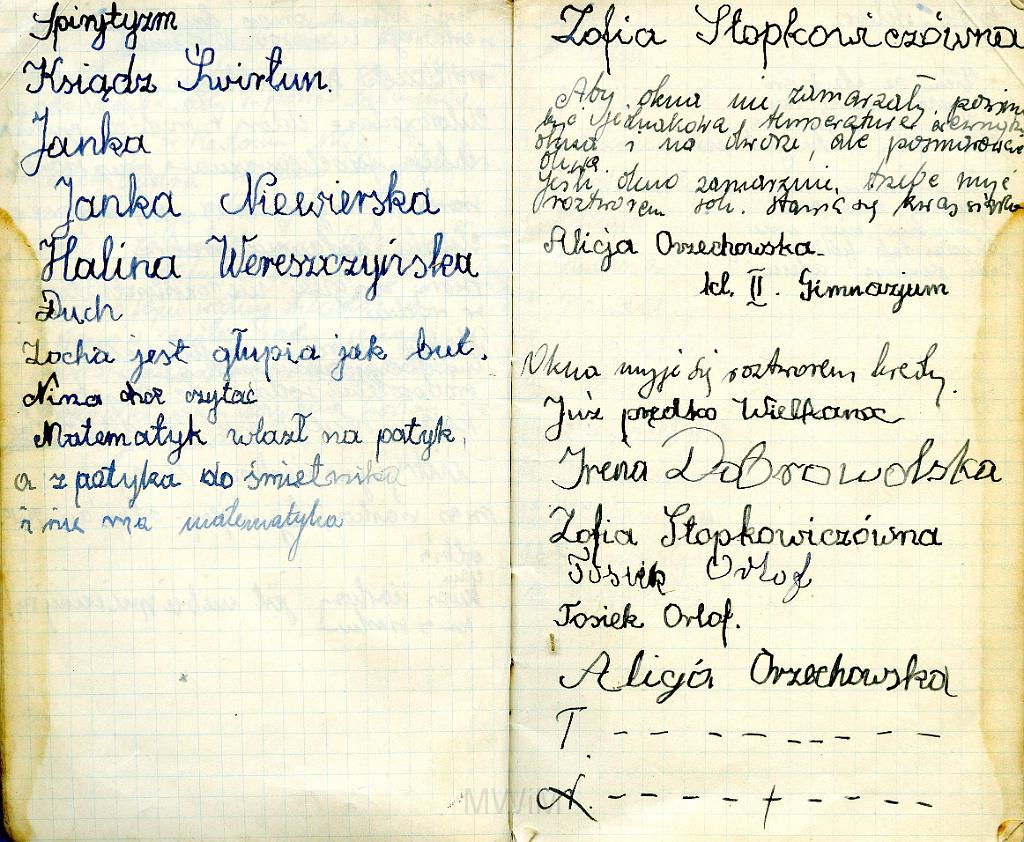 Spirytyzm
Ksiądz Świrłun.
Janka
Janka Niewierska
Halina Wereszczyńska
Duch
Zocha jest głupia jak but.
Nina chce czytać
Matematyk wlazł na patyk,
a z patyka do śmietnika
i nie ma matematyka
Zofia Stopkowiczówna
Aby okna nie zamarzały powinna
być jednakowa temperatura zewnątrz
okna i na dworze, albo posmarować
oliwą.
Jeśli okno zamarznie, trzeba myć
roztworem soli.
Alicja Orzechowska.
kl. II. Gimnazjum
Okna myje się roztworem kredy.
Już prędko Wielkanoc
Irena Dobrowolska
Zofia Stopkowiczówna
Tosiek Orłof
Tosiek Orłof.
Alicja Orzechowska
T. – – – – – – – –
A. – – – – + – – – –
MWiM